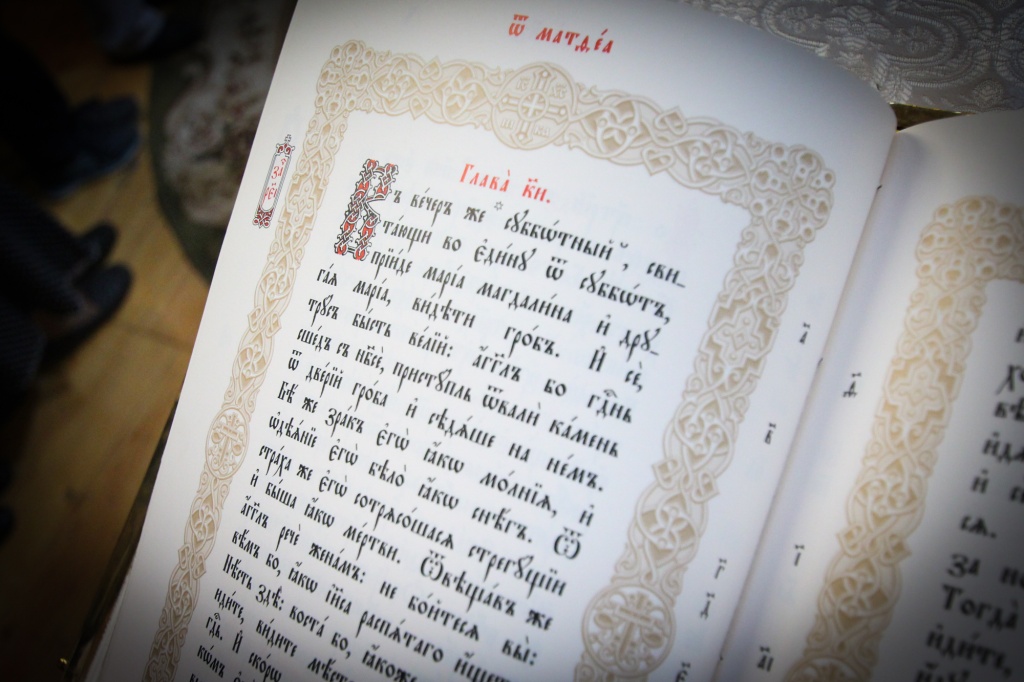 Ѿ матѳе́а
Глава̀ к҃и.
Въ ве́черъ же сꙋббѡ́тный, сви-
та́ющи во є҆ди́нꙋ ѿ сꙋббѡ́тъ,
прїи́де марі́а магдали́на и҆ дрꙋ-
га́ѧ марі́а, ви́дѣти гро́бъ. И҆ сѐ,
трꙋ́съ бы́сть ве́лїй: а҆́гг҃лъ бо гдⷭ҇нь
сше́дъ съ нб҃сѐ, пристꙋ́пль ѿвалѝ ка́мень
ѿ две́рїй гро́ба и҆ сѣдѧ́ше на не́мъ.
Бѣ́ же зра́къ є҆гѡ̀ ꙗ҆́кѡ мо́лнїѧ, и҆
ѡ҆дѣѧ́нїе є҆гѡ̀ бѣло̀ ꙗ҆́кѡ снѣ́гъ. Ѿ
стра́ха же є҆гѡ̀ сотрѧсо́шасѧ стрегꙋ́щїи
и҆ бы́ша ꙗ҆́кѡ ме́ртви. Ѿвѣща́въ же
а҆́гг҃лъ речѐ жена́мъ: не бо́йтесѧ вы̀:
вѣ́мъ бо, ꙗ҆́кѡ і҆и҃са распѧ́таго и҆́щете
Нѣ́сть здѣ̀: воста́ бо, ꙗ҆́коже
иди́те, ви́дите мѣ́сто
гдⷭ҇ь. И҆ ско́рѡ
Тогда̀
иди́те,